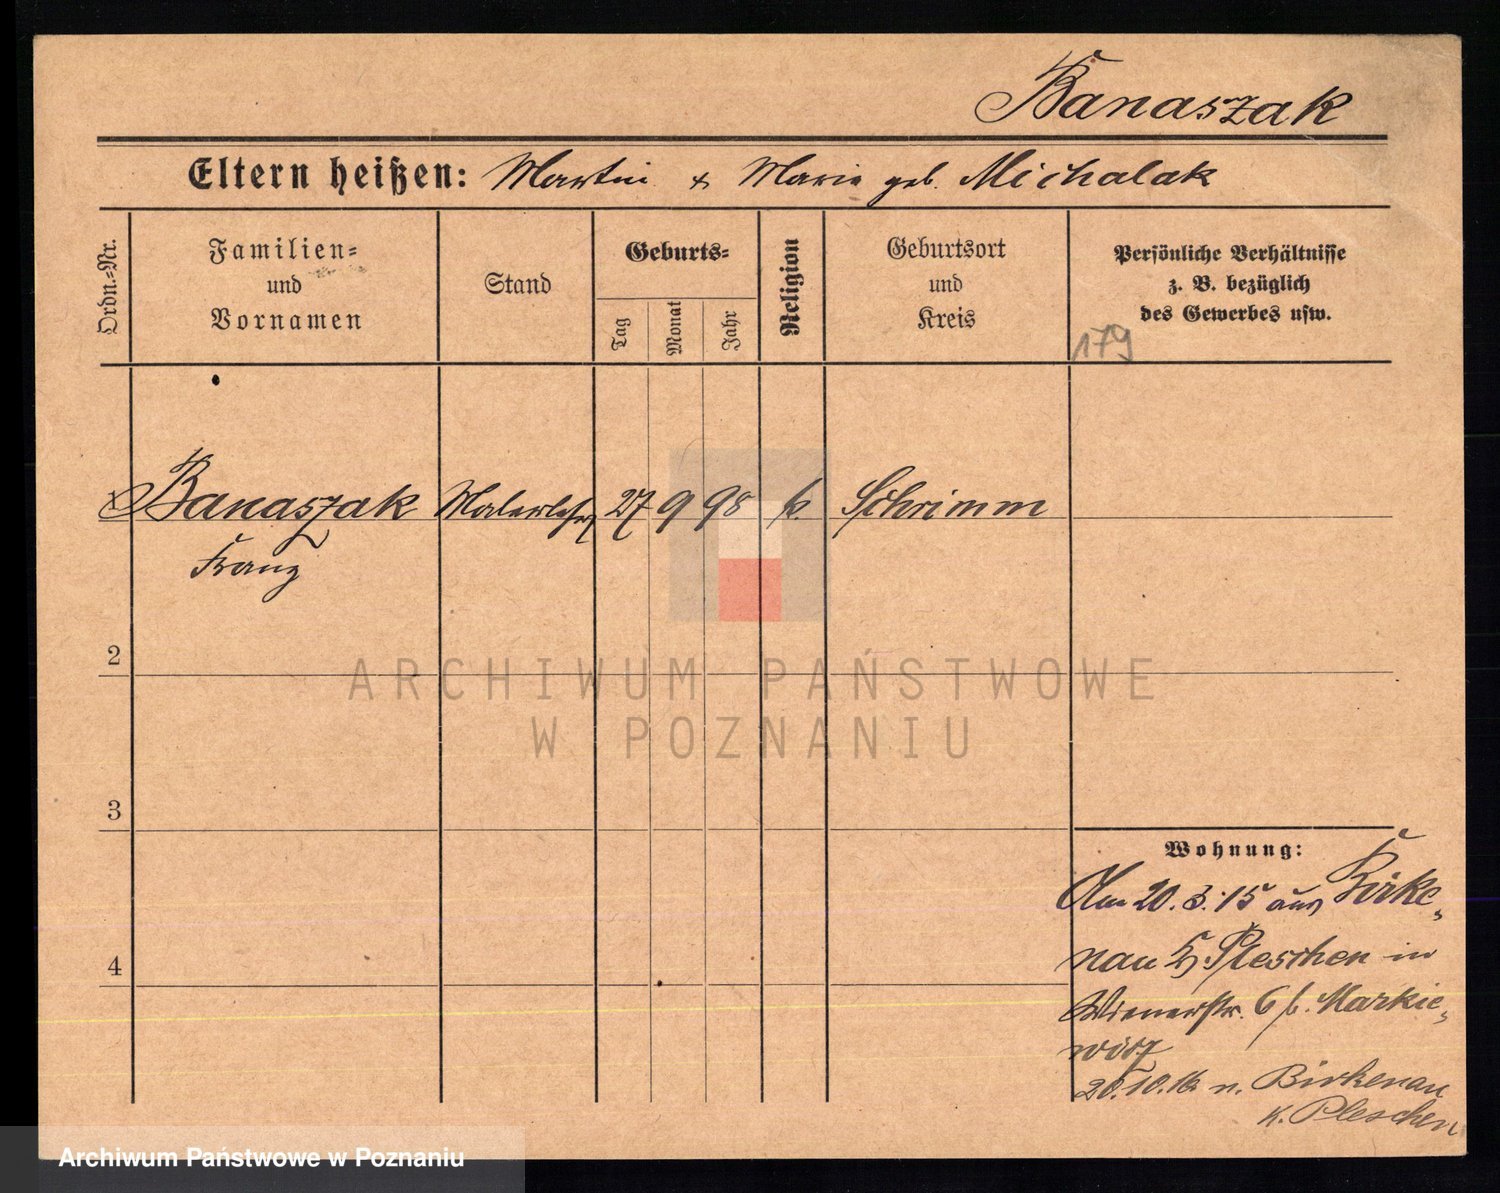 Banaszak
Eltern heißen: Martin + Marie geb. Michalak
Ordn.-Nr.
Familien- und Vornamen
Stand
Geburts-
Tag
Monat
Jahr
Religion
Geburtsort und Kreis
Persönliche Verhältnisse
z. B. bezüglich
des Gewerbes usw.
179
Banaszak Malerlehrl 27 9 98 k. Schrimm
Franz
2
3
4
Wohnung:
Am 20.3.15 aus Birke-
nau K. Pleschen in
Wienerstr. 6 b. Markie-
wicz
20.10.16 n. Birkenau
K. Pleschen
ARCHIWUM PAŃSTWOWE
W POZNANIU
Archiwum Państwowe w Poznaniu